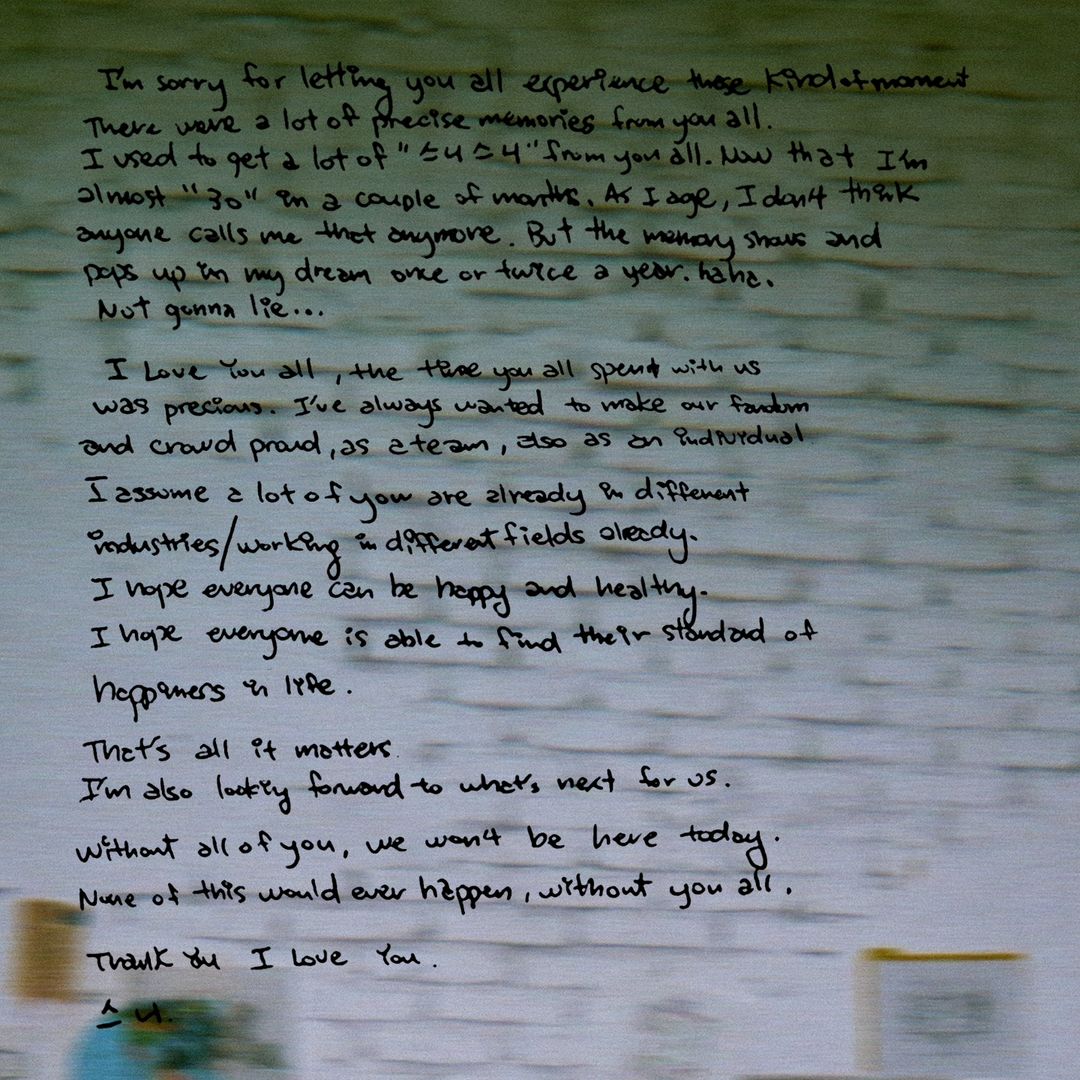 I'm sorry for letting you all experience these kind of moment
There were a lot of precise memories from you all.
I used to get a lot of "스너스너" from you all. Now that I'm
almost "30" in a couple of months. As I age, I don't think
anyone calls me that anymore. But the memory shows and
pops up in my dream once or twice a year. haha.
Not gonna lie...
I Love You all, the time you all spent with us
was precious. I've always wanted to make our fandom
and crowd proud, as a team, also as an individual
I assume a lot of you are already in different
industries/working in different fields already.
I hope everyone can be happy and healthy.
I hope everyone is able to find their standard of
happiness in life.
That's all it matters.
I'm also looking forward to what's next for us.
Without all of you, we won't be here today.
None of this would ever happen, without you all.
Thank You I Love You.
스너.